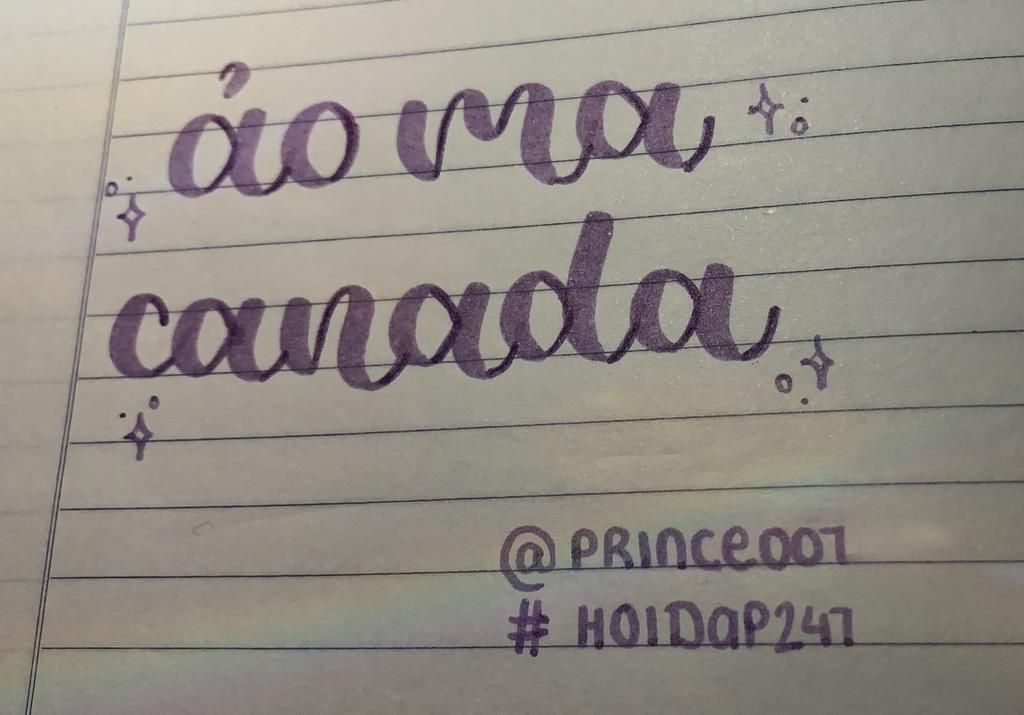 ảo ma
canada
@PRINCE007
# HOIDAP247